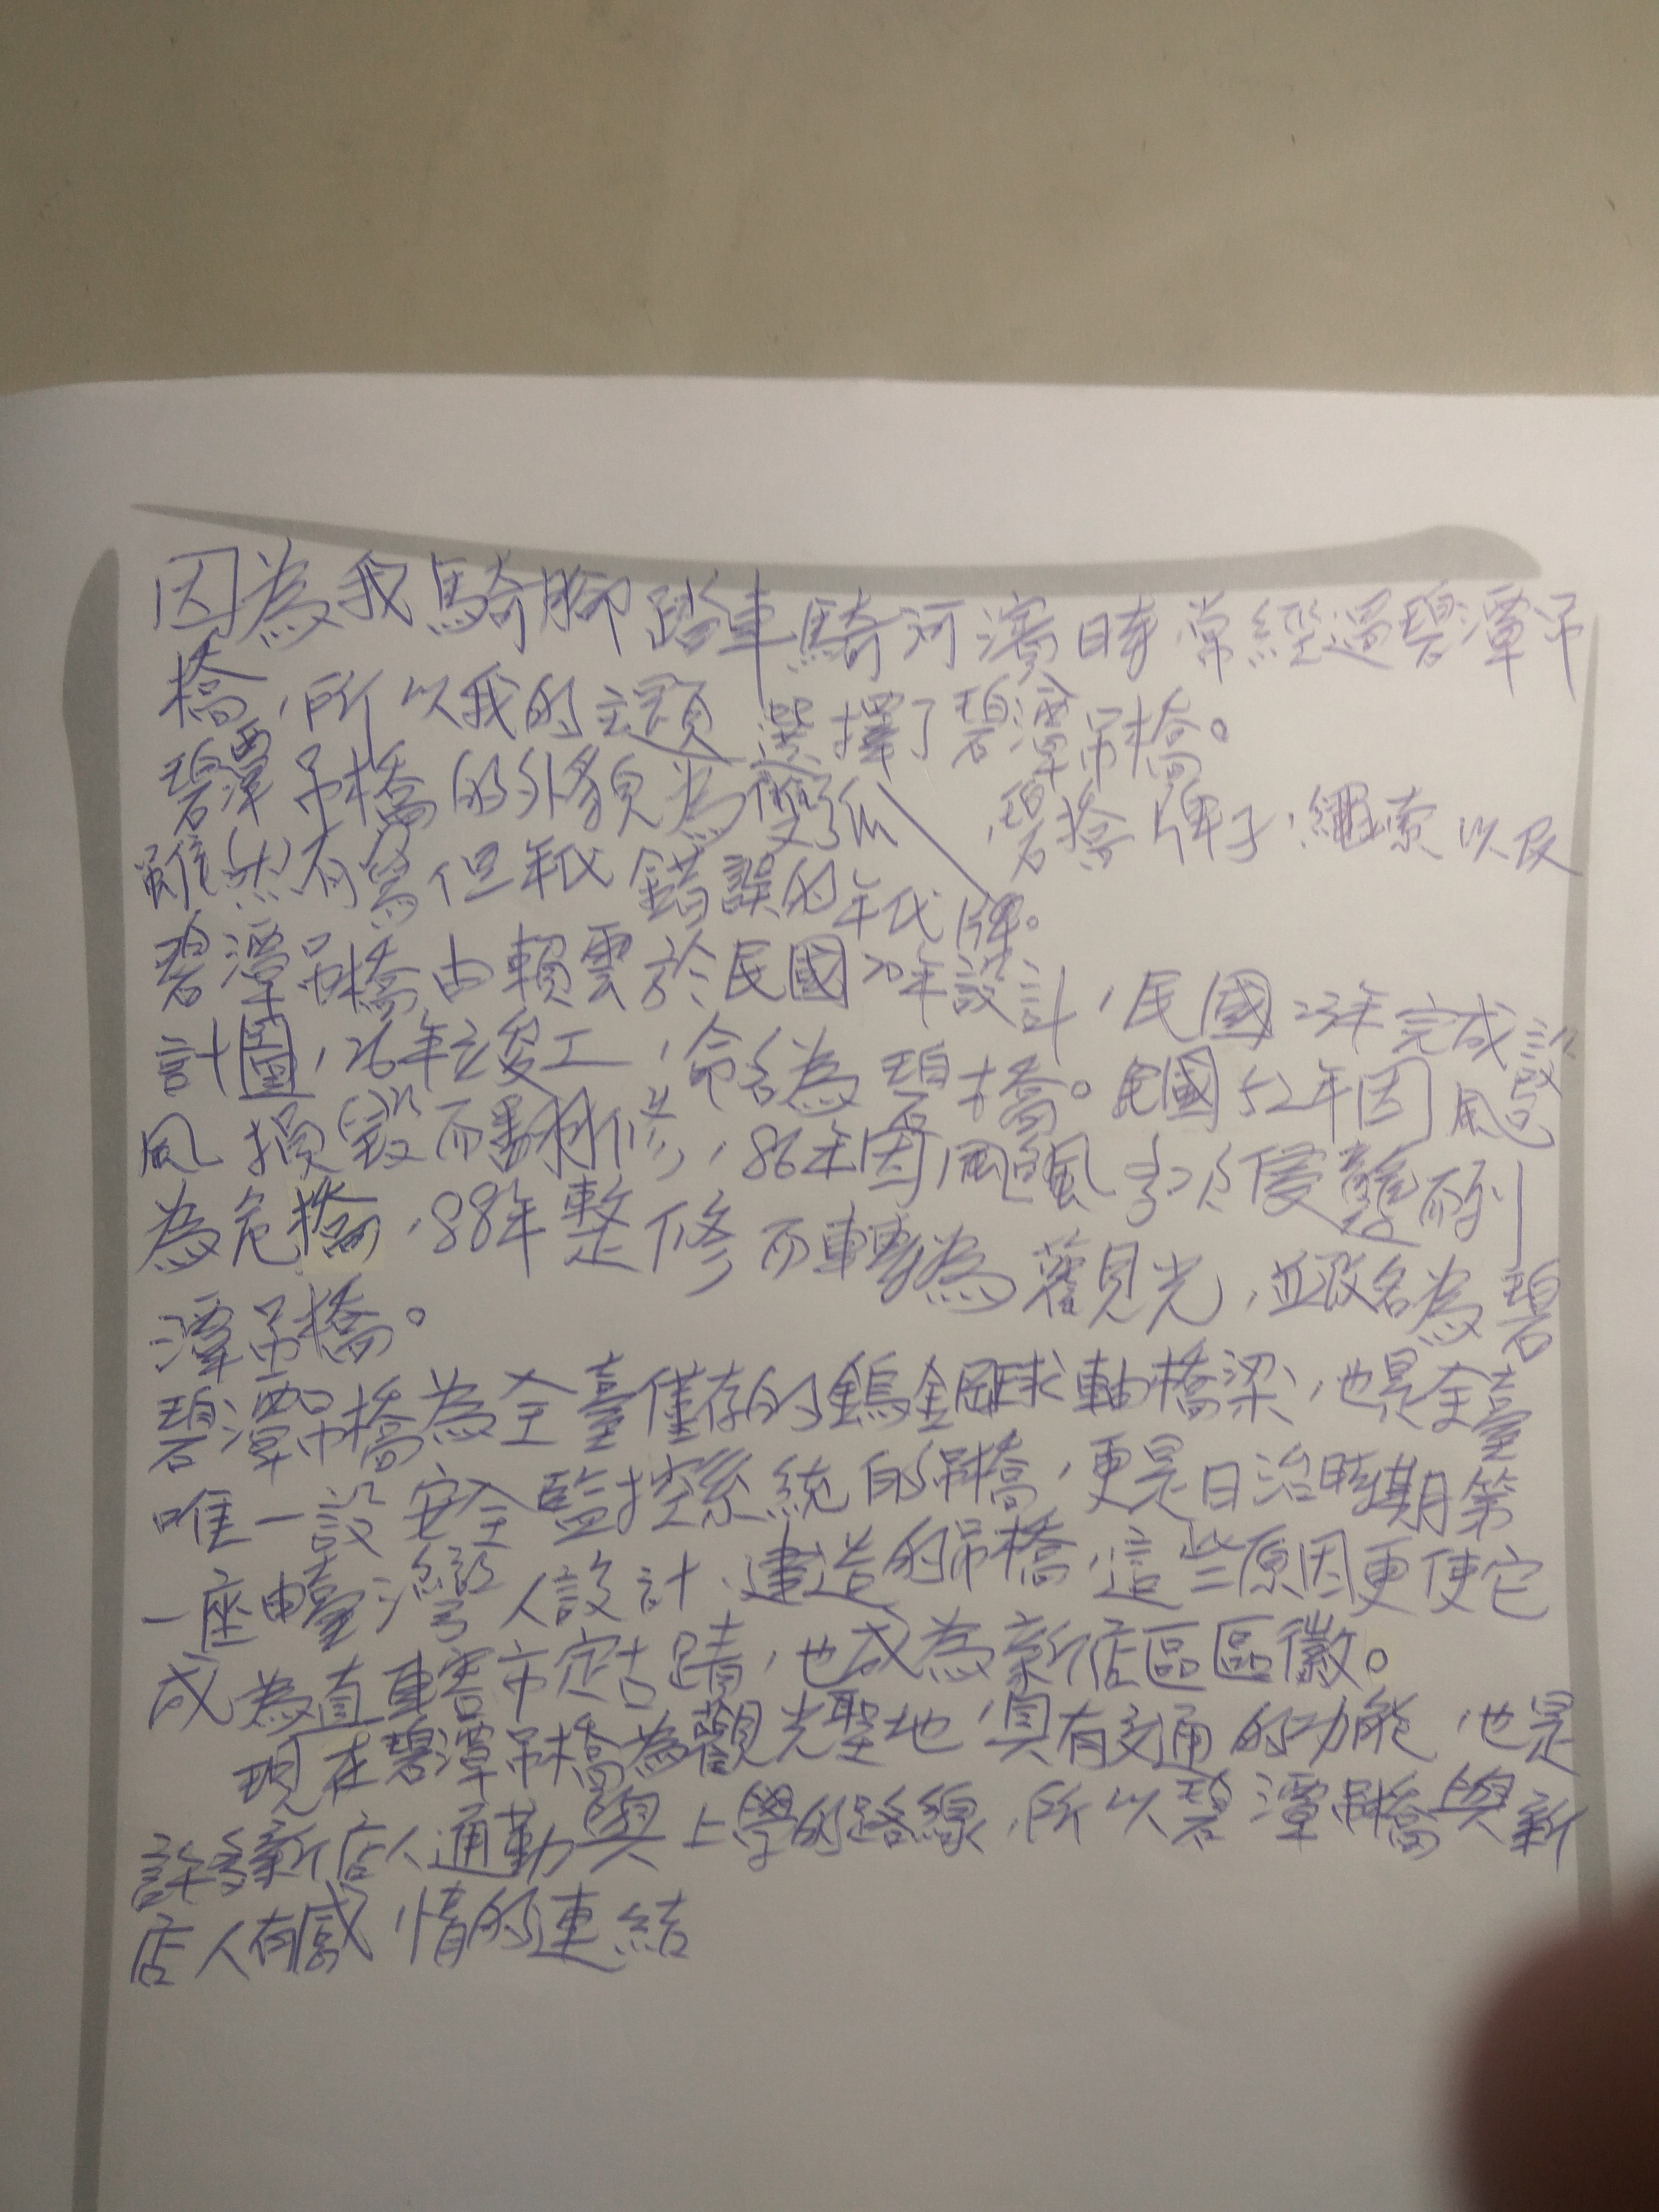 因為我騎腳踏車騎河濱時常經過碧潭吊
橋，所以我的主題選擇了碧潭吊橋。
碧潭吊橋的外貌為雙弧、碧橋牌子、繩索以及
雖然有寫但年代錯誤的年代牌。
碧潭吊橋由賴雲於民國20年設計，民國23年完成設
計圖，26年竣工，命名為碧橋。民國52年因颱
風損毀而翻修，86年因颱風多次侵襲而列
為危橋，88年整修而轉為觀光，並改名為碧
潭吊橋。
碧潭吊橋為全臺僅存的鎢鋼球軸橋梁，也是全臺
唯一設安全監控系統的吊橋，更是日治時期第
一座由臺灣人設計、建造的吊橋，這些原因更使它
成為直轄市定古蹟，也成為新店區區徽。
現在碧潭吊橋為觀光聖地，具有交通的功能，也是
許多新店人通勤與上學的路線，所以碧潭吊橋與新
店人有感情的連結